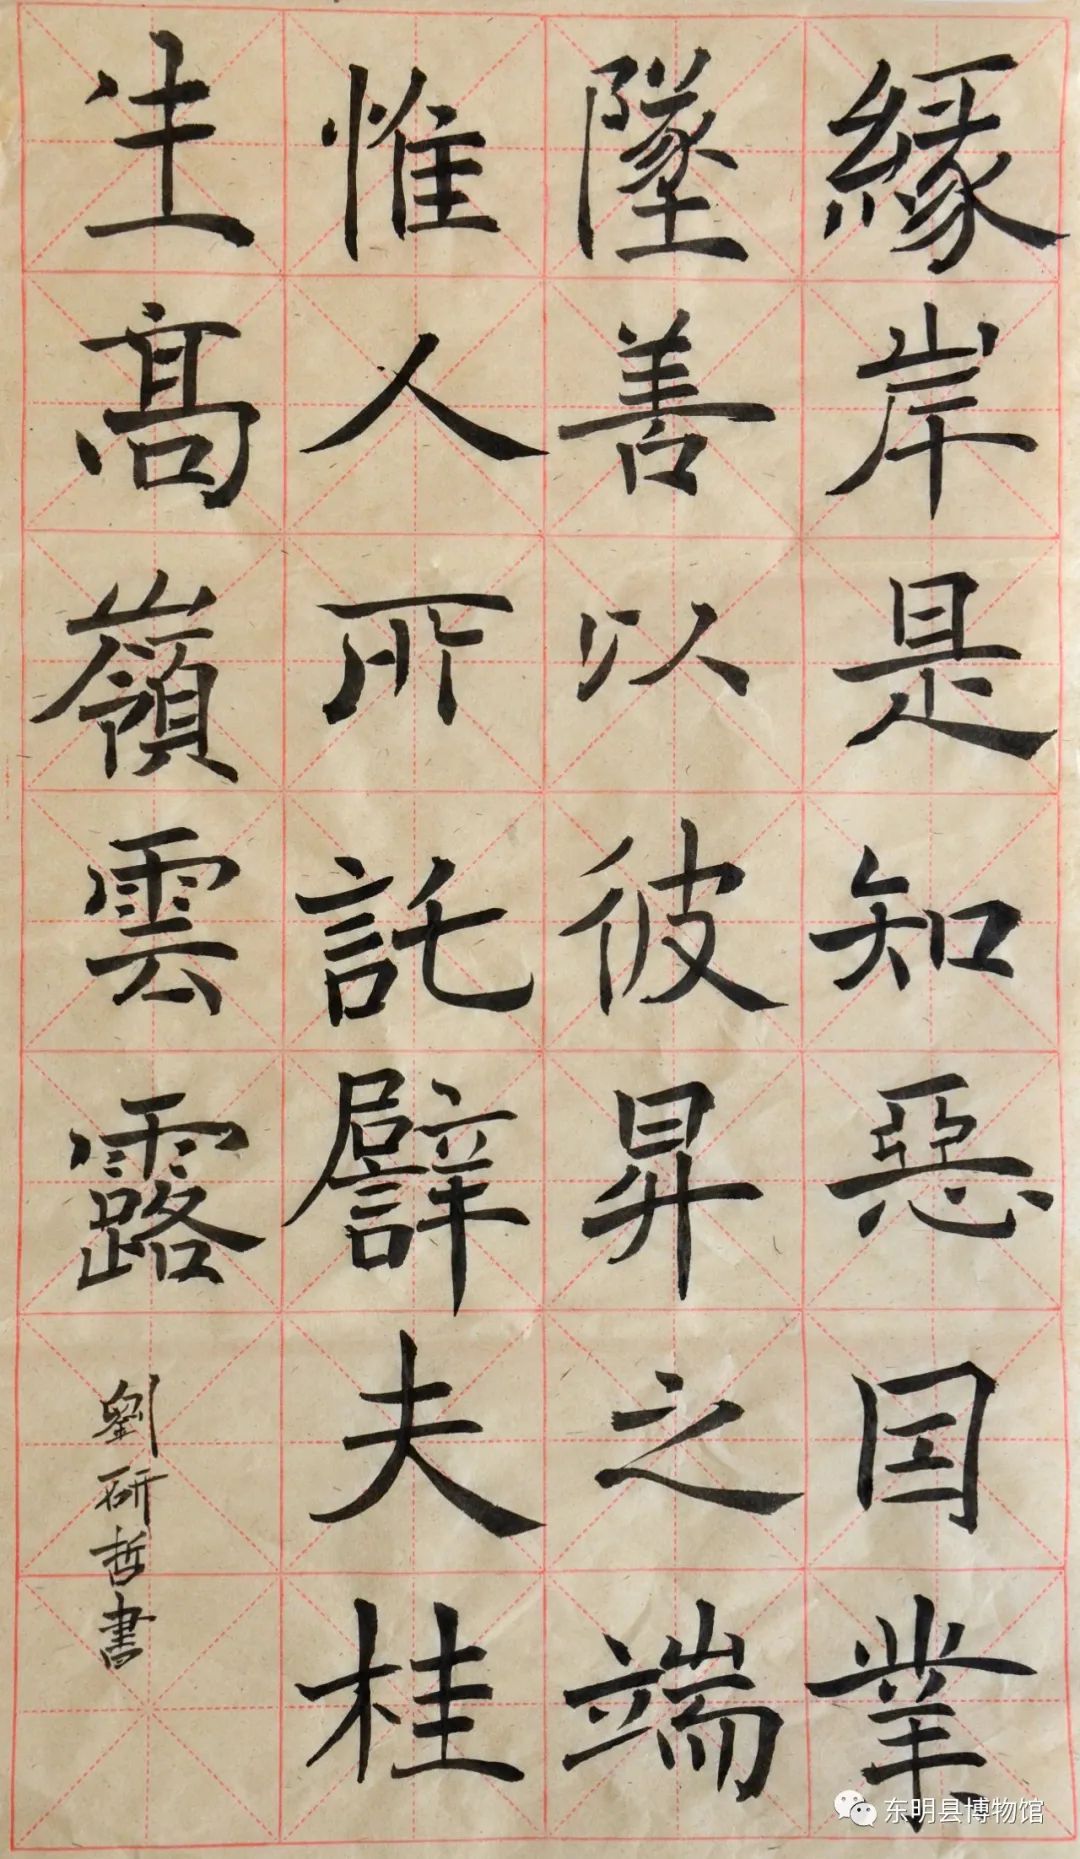 緣岸是知惡因業
墜善以彼昇之端
惟人所託譬夫桂
生高嶺雲露
劉研哲書
东明县博物馆